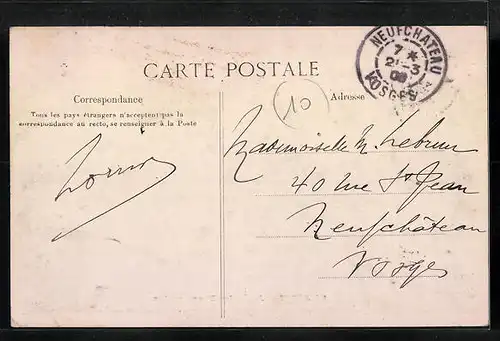 NEUFCHATEAU
7 *
21-3
08
VOSGES
CARTE POSTALE
10
Correspondance
Adresse
Tous les pays étrangers n'acceptent pas la
correspondance au recto, se renseigner à la Poste
Mademoiselle M. Lebrun
40 rue St Jean
Neufchâteau
Vosges